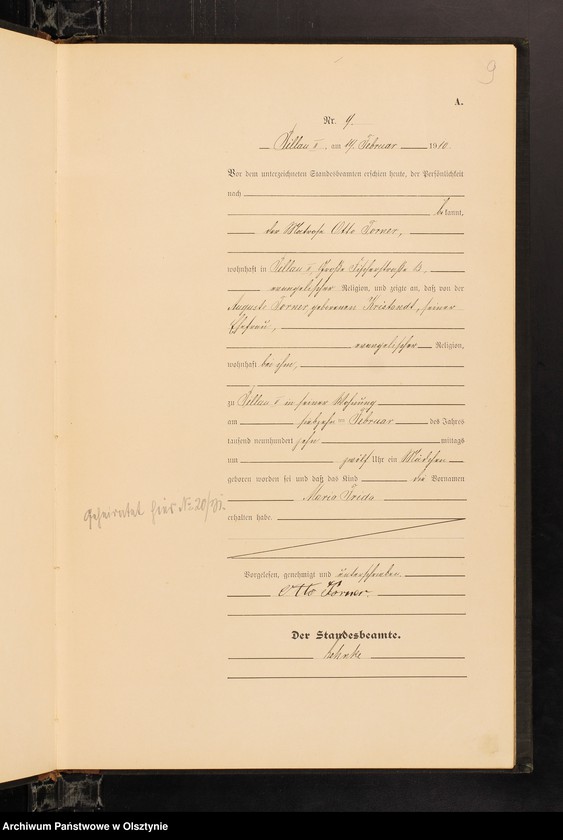 9
A.
Nr. 9.
Pillau I, am 19. Februar 1910.
Vor dem unterzeichneten Standesbeamten erschien heute, der Persönlichkeit
nach
bekannt,
der Matrose Otto Torner,
wohnhaft in Pillau I, Große Fischerstraße
evangelischer Religion, und zeigte an, daß von der
Auguste Torner geborenen Kristandt, seiner
Ehefrau,
evangelischer Religion,
wohnhaft bei ihm,
zu Pillau I in seiner Wohnung
am siebzehnten Februar des Jahres
tausend neunhundert zehn mittags
um zwölf Uhr ein Mädchen
geboren worden sei und daß das Kind die Vornamen
Maria Frida
erhalten habe.
Geheiratet hier No 20/31.
Vorgelesen, genehmigt und unterschrieben.
Otto Torner.
Der Standesbeamte.
Archiwum Państwowe w Olsztynie